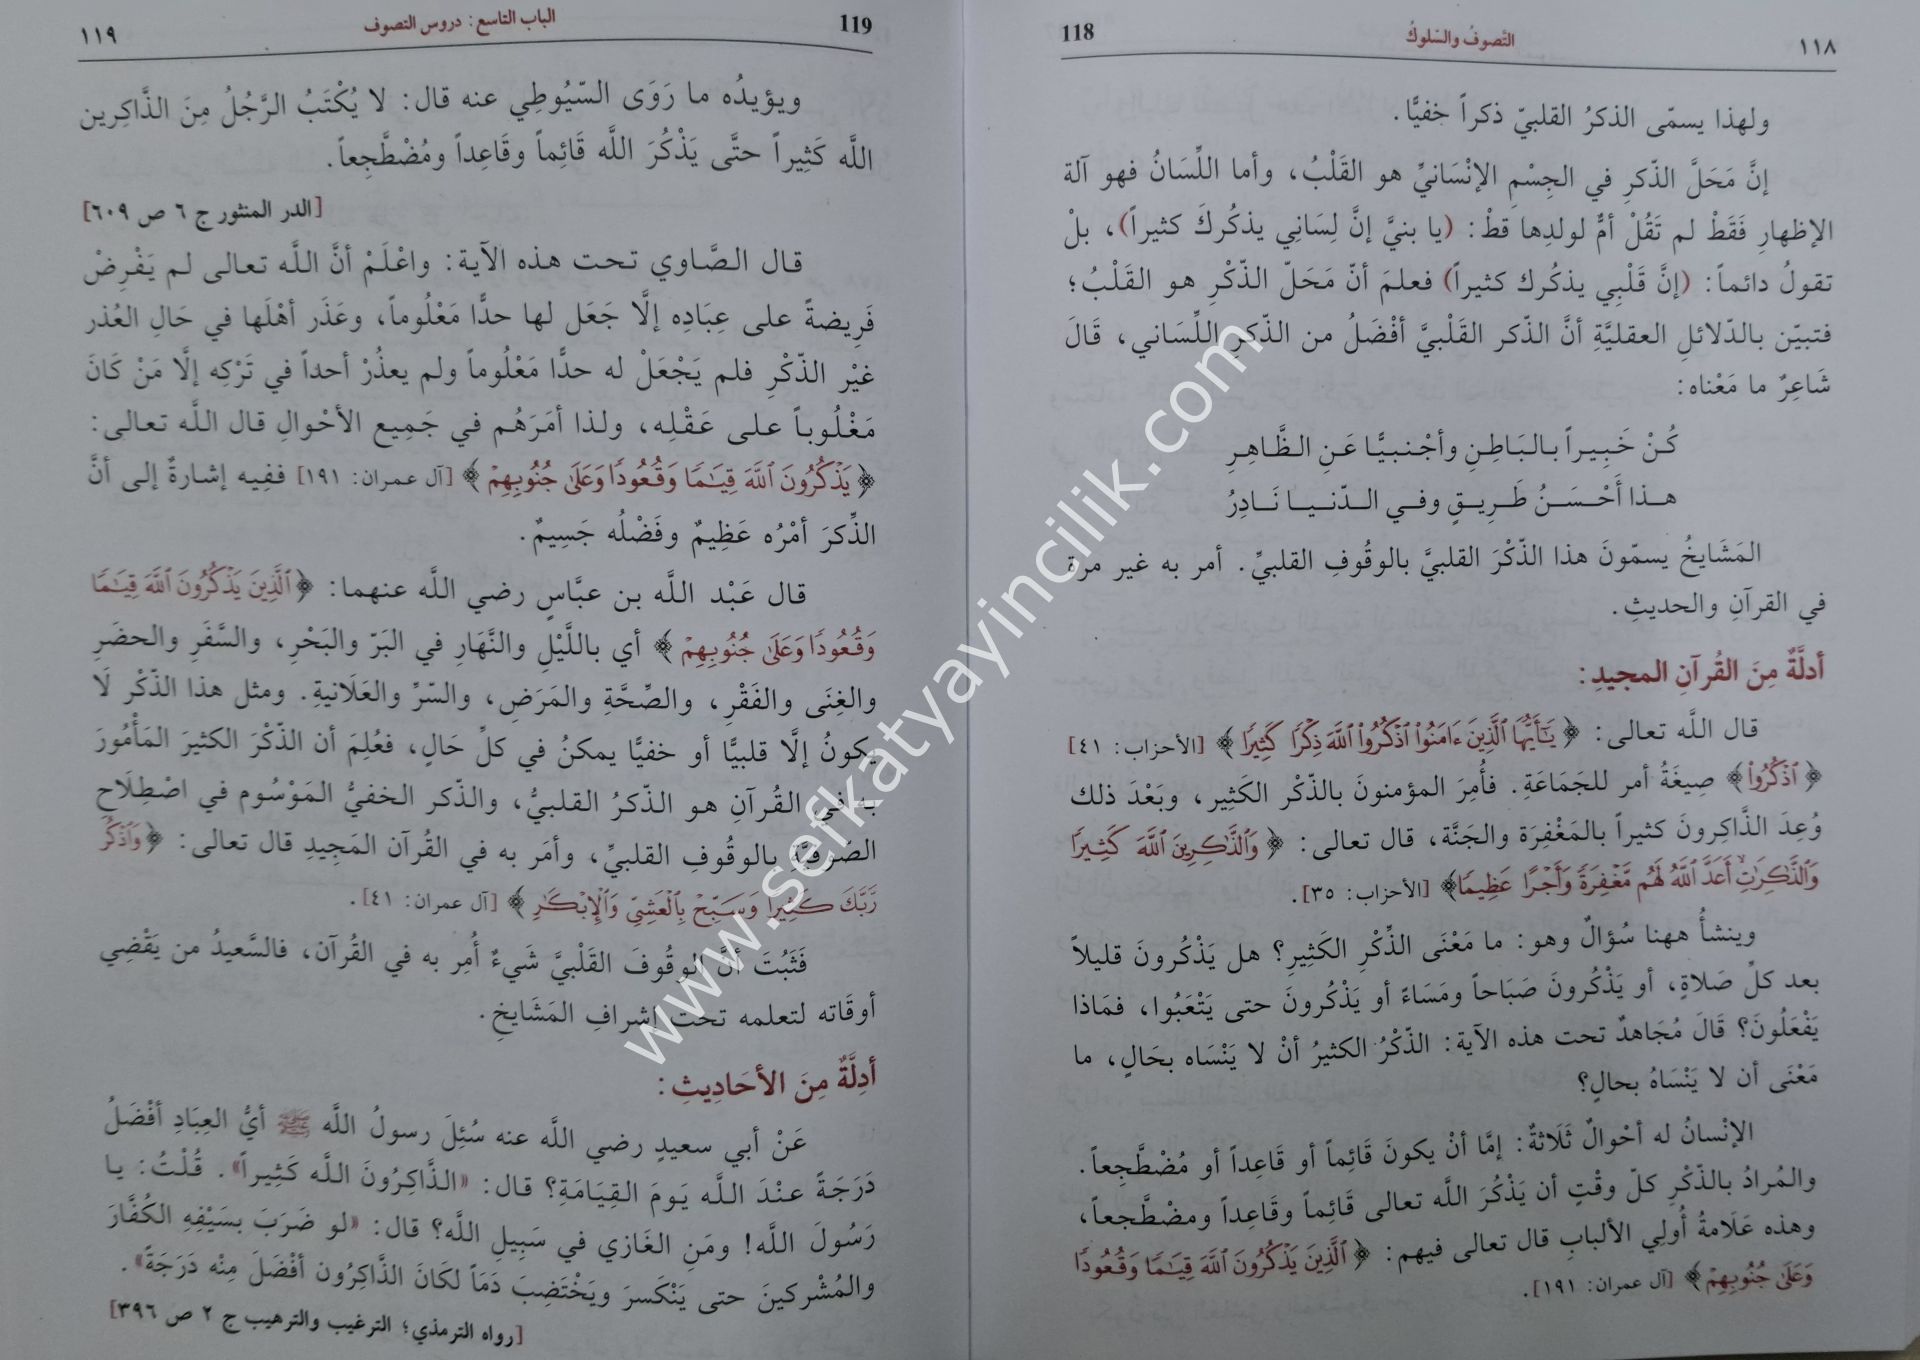 ١١٨ التصوف والسلوك 118
ولهذا يسمّى الذكرُ القلبيّ ذكراً خفيًّا.
إنَّ مَحَلَّ الذّكرِ في الجِسْمِ الإنْسَانيِّ هو القَلْبُ، وأما اللِّسَانُ فهو آلة
الإظهارِ فَقَطْ لم تَقُلْ أمٌّ لولدِها قطْ: (يا بنيَّ إنَّ لِسَانِي يذكُركَ كثيراً)، بلْ
تقولُ دائماً: (إنَّ قَلْبِي يذكُرك كثيراً) فعلمَ أنّ مَحَلّ الذّكْرِ هو القَلْبُ؛
فتبيّن بالدّلائلِ العقليَّةِ أنَّ الذكر القَلْبيَّ أفْضَلُ من الذّكرِ اللِّسَاني، قَالَ
شَاعِرٌ ما مَعْناه:
كُنْ خَبِيراً بالبَاطِنِ وأجْنبيًّا عَنِ الظَّاهِرِ
هذا أَحْسَنُ طَرِيقٍ وفي الدّنيا نَادِرُ
المَشَايخُ يسمّونَ هذا الذّكْرَ القلبيَّ بالوقُوفِ القلبيِّ. أمر به غير مرة
في القرآنِ والحديثِ.
أدلَّةٌ مِنَ القُرآنِ المجيدِ:
قال اللَّه تعالى: ﴿يَٰٓأَيُّهَا ٱلَّذِينَ ءَامَنُوا۟ ٱذْكُرُوا۟ ٱللَّهَ ذِكْرًا كَثِيرًا﴾ [الأحزاب: ٤١]
﴿ٱذْكُرُوا۟﴾ صِيغَةُ أمر للجَمَاعَةِ. فأُمِرَ المؤمنونَ بالذّكْر الكَثِير، وبَعْدَ ذلك
وُعِدَ الذَّاكِرونَ كثيراً بالمَغْفِرَة والجَنَّة، قال تعالى: ﴿وَٱلذَّٰكِرِينَ ٱللَّهَ كَثِيرًا
وَٱلذَّٰكِرَٰتِ أَعَدَّ ٱللَّهُ لَهُم مَّغْفِرَةً وَأَجْرًا عَظِيمًا﴾ [الأحزاب: ٣٥].
وينشأُ ههنا سُؤالٌ وهو: ما مَعْنَى الذِّكْرِ الكَثِيرِ؟ هل يَذْكُرونَ قليلاً
بعد كلِّ صَلاةٍ، أو يَذْكُرونَ صَبَاحاً ومَسَاءً أو يَذْكُرونَ حتى يَتْعَبُوا، فمَاذا
يَفْعَلُونَ؟ قَالَ مُجَاهدٌ تحت هذه الآية: الذّكْرُ الكثيرُ أنْ لا يَنْسَاه بحَالٍ، ما
مَعْنَى أن لا يَنْسَاهُ بحالٍ؟
الإنْسانُ له أحْوالٌ ثَلَاثةٌ: إمَّا أنْ يكونَ قَائِماً أو قَاعِداً أو مُضْطَّجِعاً.
والمُرادُ بالذّكْرِ كلّ وقْتٍ أن يَذْكُرَ اللَّه تعالى قَائِماً وقَاعِداً ومضْطَّجعاً،
وهذه عَلَامةُ أُولِي الألبابِ قال تعالى فيهم: ﴿ٱلَّذِينَ يَذْكُرُونَ ٱللَّهَ قِيَٰمًا وَقُعُودًا
وَعَلَىٰ جُنُوبِهِمْ﴾ [آل عمران: ١٩١].
119 الباب التاسع: دروس التصوف ١١٩
ويؤيدُه ما رَوَى السّيُوطِي عنه قال: لا يُكْتَبُ الرَّجُلُ مِنَ الذَّاكِرين
اللَّه كَثِيراً حتَّى يَذْكُرَ اللَّه قَائِماً وقَاعِداً ومُضْطَّجِعاً.
[الدر المنثور ج ٦ ص ٦٠٩]
قال الصَّاوي تحت هذه الآية: واعْلَمْ أنَّ اللَّه تعالى لم يَفْرِضْ
فَرِيضةً على عِبَادِه إلَّا جَعَل لها حدًّا مَعْلُوماً، وعَذَر أهْلَها في حَالِ العُذر
غيْر الذّكْرِ فلم يَجْعَلْ له حدًّا مَعْلُوماً ولم يعذُرْ أحداً في تَرْكِه إلَّا مَنْ كَانَ
مَغْلُوباً على عَقْلِه، ولذا أمَرَهُم في جَمِيع الأحْوالِ قال اللَّه تعالى:
﴿يَذْكُرُونَ ٱللَّهَ قِيَٰمًا وَقُعُودًا وَعَلَىٰ جُنُوبِهِمْ﴾ [آل عمران: ١٩١] ففِيه إشارةٌ إلى أنَّ
الذِّكرَ أمْرُه عَظِيمٌ وفَضْلُه جَسِيمٌ.
قال عَبْد اللَّه بن عبَّاسٍ رضي اللَّه عنهما: ﴿ٱلَّذِينَ يَذْكُرُونَ ٱللَّهَ قِيَٰمًا
وَقُعُودًا وَعَلَىٰ جُنُوبِهِمْ﴾ أي باللَّيْلِ والنَّهَارِ في البَرّ والبَحْرِ، والسَّفَرِ والحضَرِ
والغِنَى والفَقْرِ، والصِّحَّةِ والمَرَضِ، والسّرِّ والعَلَانيةِ. ومثل هذا الذّكْر لَا
يكونُ إلَّا قلبيًّا أو خفيًّا يمكنُ في كلّ حَالٍ، فعُلِمَ أن الذّكْرَ الكثيرَ المَأْمُورَ
به في القُرآنِ هو الذّكرُ القلبيُّ، والذّكر الخفيُّ المَوْسُوم في اصْطِلَاحِ
الصّوفيَّةِ بالوقُوفِ القلبيِّ، وأمَر به في القُرآن المَجِيدِ قال تعالى: ﴿وَٱذْكُر
رَّبَّكَ كَثِيرًا وَسَبِّحْ بِٱلْعَشِيِّ وَٱلْإِبْكَٰرِ﴾ [آل عمران: ٤١].
فَثَبُتَ أنَّ الوقُوفَ القَلْبيَّ شَيءٌ أُمِر به في القُرآن، فالسَّعيدُ من يَقْضِي
أوقَاته لتعلمه تحت إشرافِ المَشَايخِ.
أدِلَّةٌ مِنَ الأحَادِيثِ:
عَنْ أبي سعيدٍ رضي اللَّه عنه سُئِلَ رسولُ اللَّه ﷺ أيُّ العِبَادِ أفْضَلُ
دَرَجَةً عنْدَ اللَّه يَومَ القِيَامَةِ؟ قال: «الذَّاكِرُونَ اللَّه كَثِيراً». قُلْتُ: يا
رَسُولَ اللَّه! ومَنِ الغَازي في سَبِيلِ اللَّه؟ قال: «لو ضَرَبَ بسَيْفِهِ الكُفَّارَ
والمُشْركينَ حتى يَنْكَسرَ ويَخْتَضِبَ دَمَاً لكَانَ الذَّاكِرُون أفْضَلَ مِنْه دَرَجَةً».
[رواه الترمذي؛ الترغيب والترهيب ج ٢ ص ٣٩٦]
www.sefkatyayincilik.com